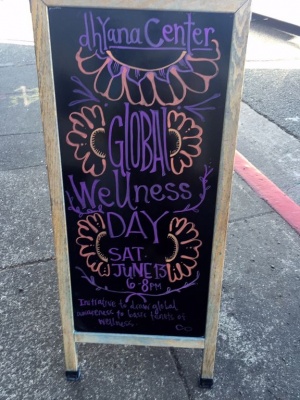 dhyana Center
GLOBAL
Wellness
DAY
SAT.
JUNE 13
6-8PM
Initiative to draw global
awareness to basic tenets of
wellness.